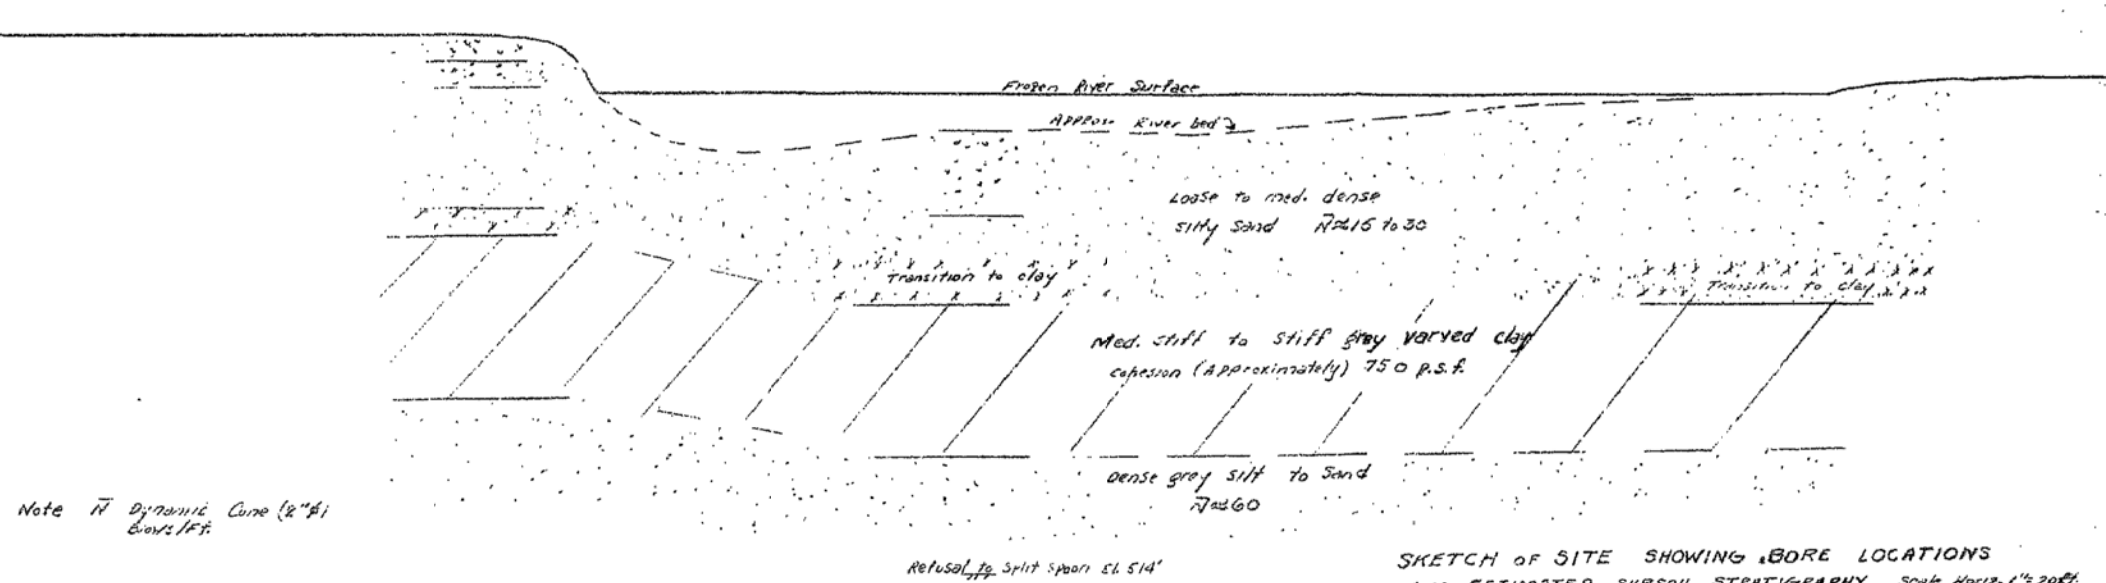 Frozen River Surface
Approx. River bed
Loose to med. dense
silty sand N̄≈15 to 30
Transition to clay
Transition to clay
Med. stiff to stiff grey varved clay
cohesion (Approximately) 750 p.s.f.
Dense grey silt to sand
N̄≈60
Note N̄ Dynamic Cone (2"φ)
Blows/Ft.
Refusal to split spoon El. 514'
SKETCH OF SITE SHOWING BORE LOCATIONS
ESTIMATED SUBSOIL STRATIGRAPHY Scale Horiz. 1"=20ft.